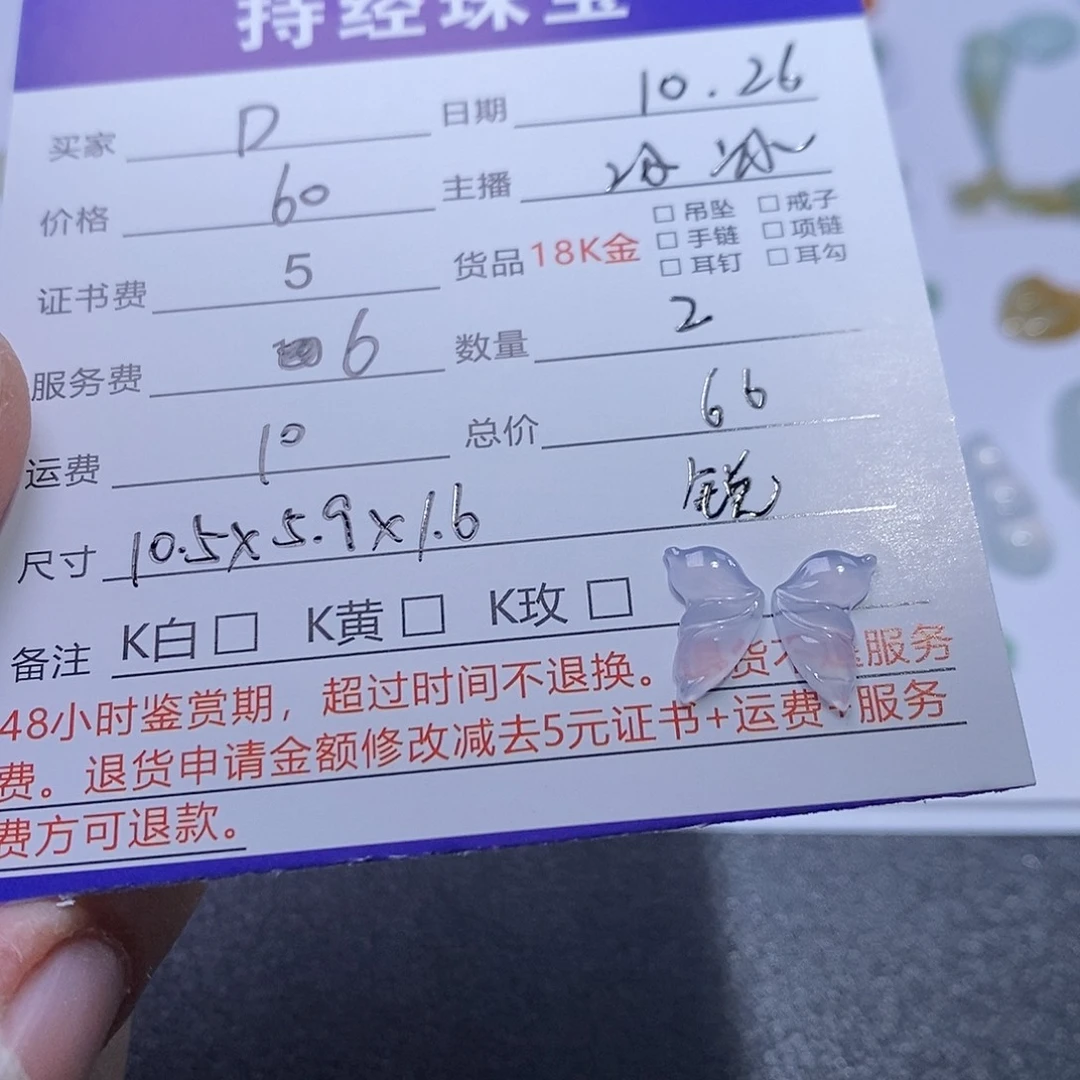 持经珠宝
买家 D 日期 10.26
价格 60 主播
证书费 5 货品 18K金 □ 吊坠 □ 戒子
□ 手链 □ 项链
□ 耳钉 □ 耳勾
服务费 6 数量 2
运费 10 总价 66
尺寸 10.5×5.9×1.6 锐
备注 K白 □ K黄 □ K玫 □
48小时鉴赏期，超过时间不退换。 货不 服务
费。退货申请金额修改减去5元证书+运费+服务
费方可退款。